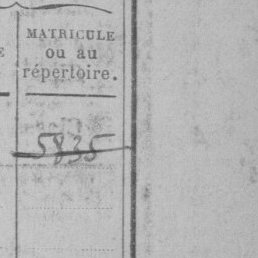 MATRICULE
ou au
répertoire.
5835